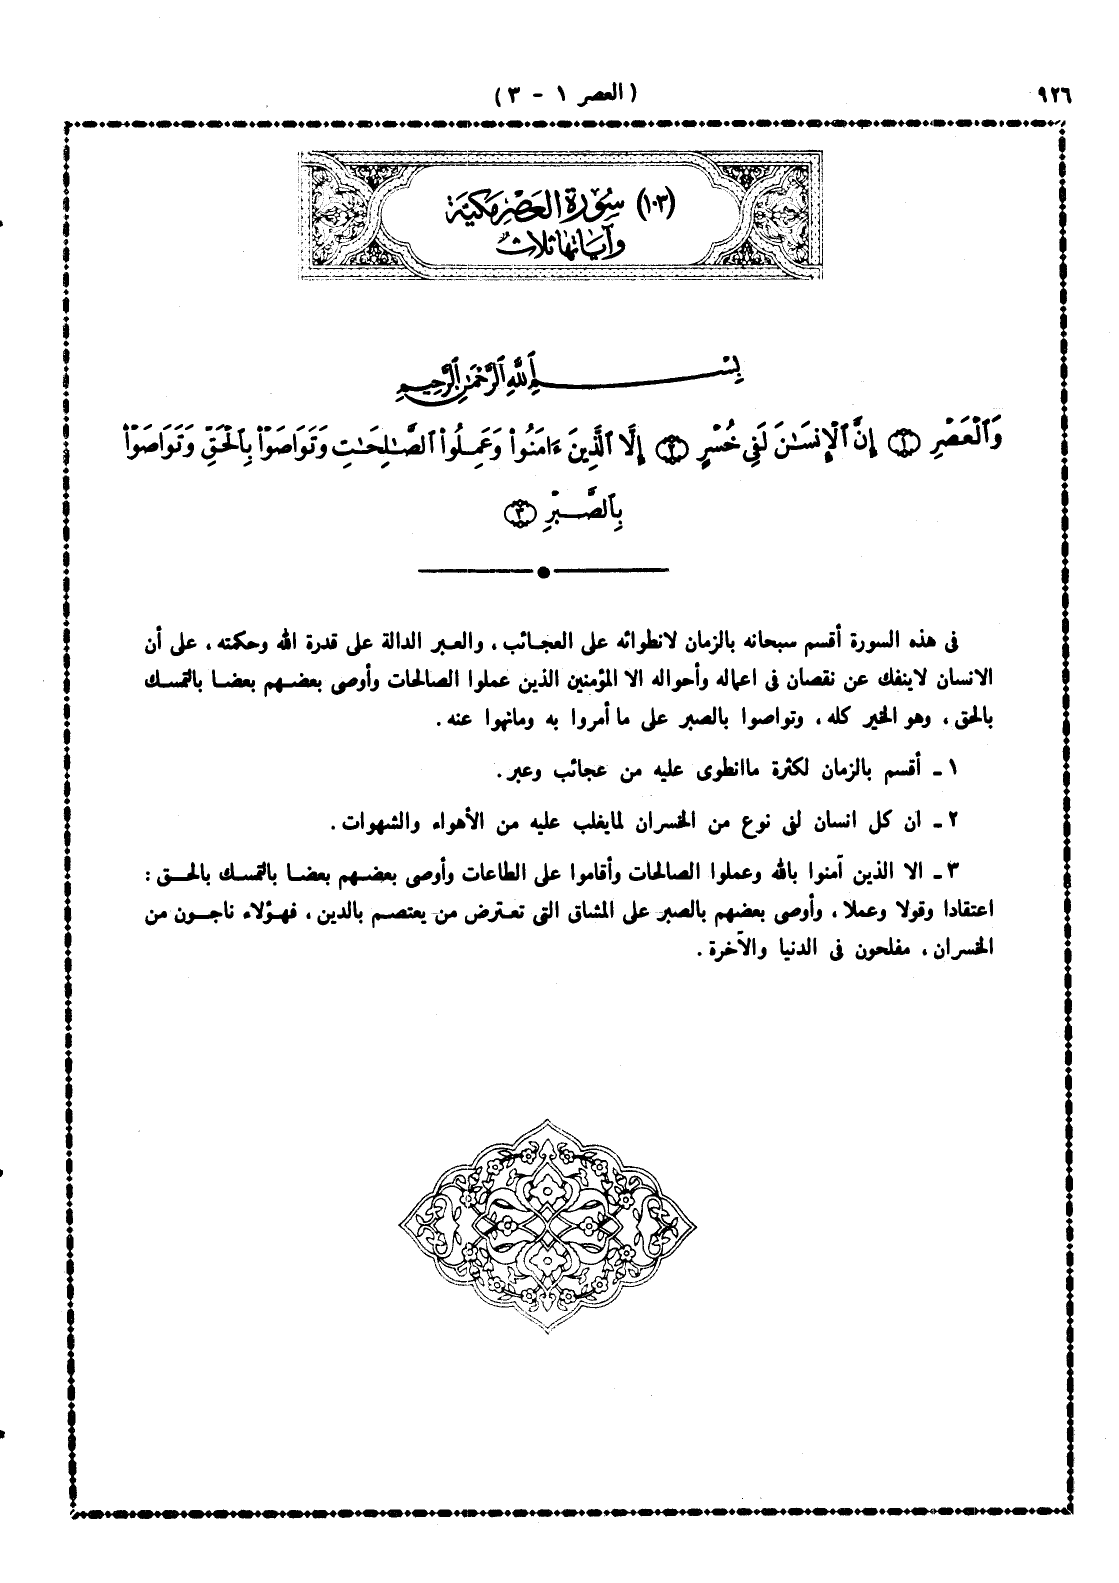 ٩٢٦
( العصر ١ - ٣ )
(١٠٣) سُورَة العَصْرِ مَكيَّة
وَآيَاتهَا ثَلاثٌ
بِسْمِ ٱللَّهِ ٱلرَّحْمَٰنِ ٱلرَّحِيمِ
وَٱلْعَصْرِ ١ إِنَّ ٱلْإِنسَٰنَ لَفِى خُسْرٍ ٢ إِلَّا ٱلَّذِينَ ءَامَنُوا۟ وَعَمِلُوا۟ ٱلصَّٰلِحَٰتِ وَتَوَاصَوْا۟ بِٱلْحَقِّ وَتَوَاصَوْا۟
بِٱلصَّبْرِ ٣
فى هذه السورة أقسم سبحانه بالزمان لانطوائه على العجائب ، والعبر الدالة على قدرة الله وحكمته ، على أن
الانسان لاينفك عن نقصان فى اعماله وأحواله الا المؤمنين الذين عملوا الصالحات وأوصى بعضهم بعضا بالتمسك
بالحق ، وهو الخير كله ، وتواصوا بالصبر على ما أمروا به ومانهوا عنه .
١ ـ أقسم بالزمان لكثرة ماانطوى عليه من عجائب وعبر .
٢ ـ ان كل انسان لفى نوع من الخسران لمايغلب عليه من الأهواء والشهوات .
٣ ـ الا الذين آمنوا بالله وعملوا الصالحات وأقاموا على الطاعات وأوصى بعضهم بعضا بالتمسك بالحق :
اعتقادا وقولا وعملا ، وأوصى بعضهم بالصبر على المشاق التى تعترض من يعتصم بالدين ، فهؤلاء ناجون من
الخسران ، مفلحون فى الدنيا والآخرة .